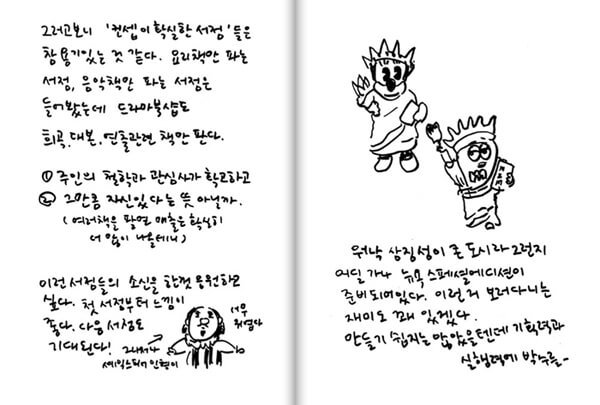 그러고보니 '컨셉이 확실한 서점'들은
참 용기있는 것 같다. 요리책만 파는
서점, 음악책만 파는 서점은
들어봤는데 드라마북샵도
희곡, 대본, 연출관련 책만 판다.
① 주인의 철학과 관심사가 확고하고
② 그만큼 자신있다는 뜻 아닐까.
(여러책을 팔면 매출은 확실히
더 많이 나올테니)
이런 서점들의 소신을 한껏 응원하고
싶다. 첫 서점부터 느낌이
좋다. 다음 서점도
기대된다!
너무
귀엽다
셰익스피어 인형이
워낙 상징성이 큰 도시라 그런지
어딜 가나 뉴욕 스페셜에디션이
준비되어있다. 이런 거 보러다니는
재미도 꽤 있겠다.
만들기 쉽지는 않았을텐데 기획력과
실행력에 박수를-